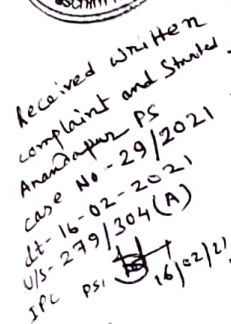 Received written
complaint and Started
Anandapur PS
case No - 29/2021
dt - 16-02-2021
U/S - 279/304(A)
IPC PSI 16/02/21